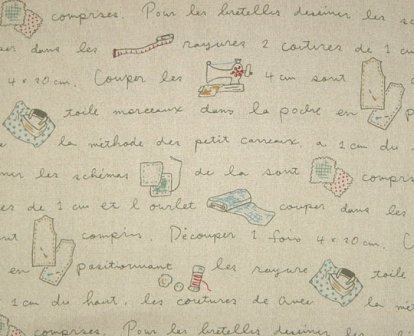 comprises. Pour les bretelles dessiner les
per dans les rayures 2 coutures de 1 cm
4 x 20 cm. Couper les 4 cm sont
toile morceaux dans la poche en
la méthode des petit carreaux, a 1 cm du
ner les schémas de la sont compris
es de 1 cm et l'ourlet couper dans les
compris. Découper 1 fois 4 x 20 cm.
en positionnant les rayure toile
1 cm du haut, les coutures de avec la mé
comprises. Pour les bretelles dessiner les